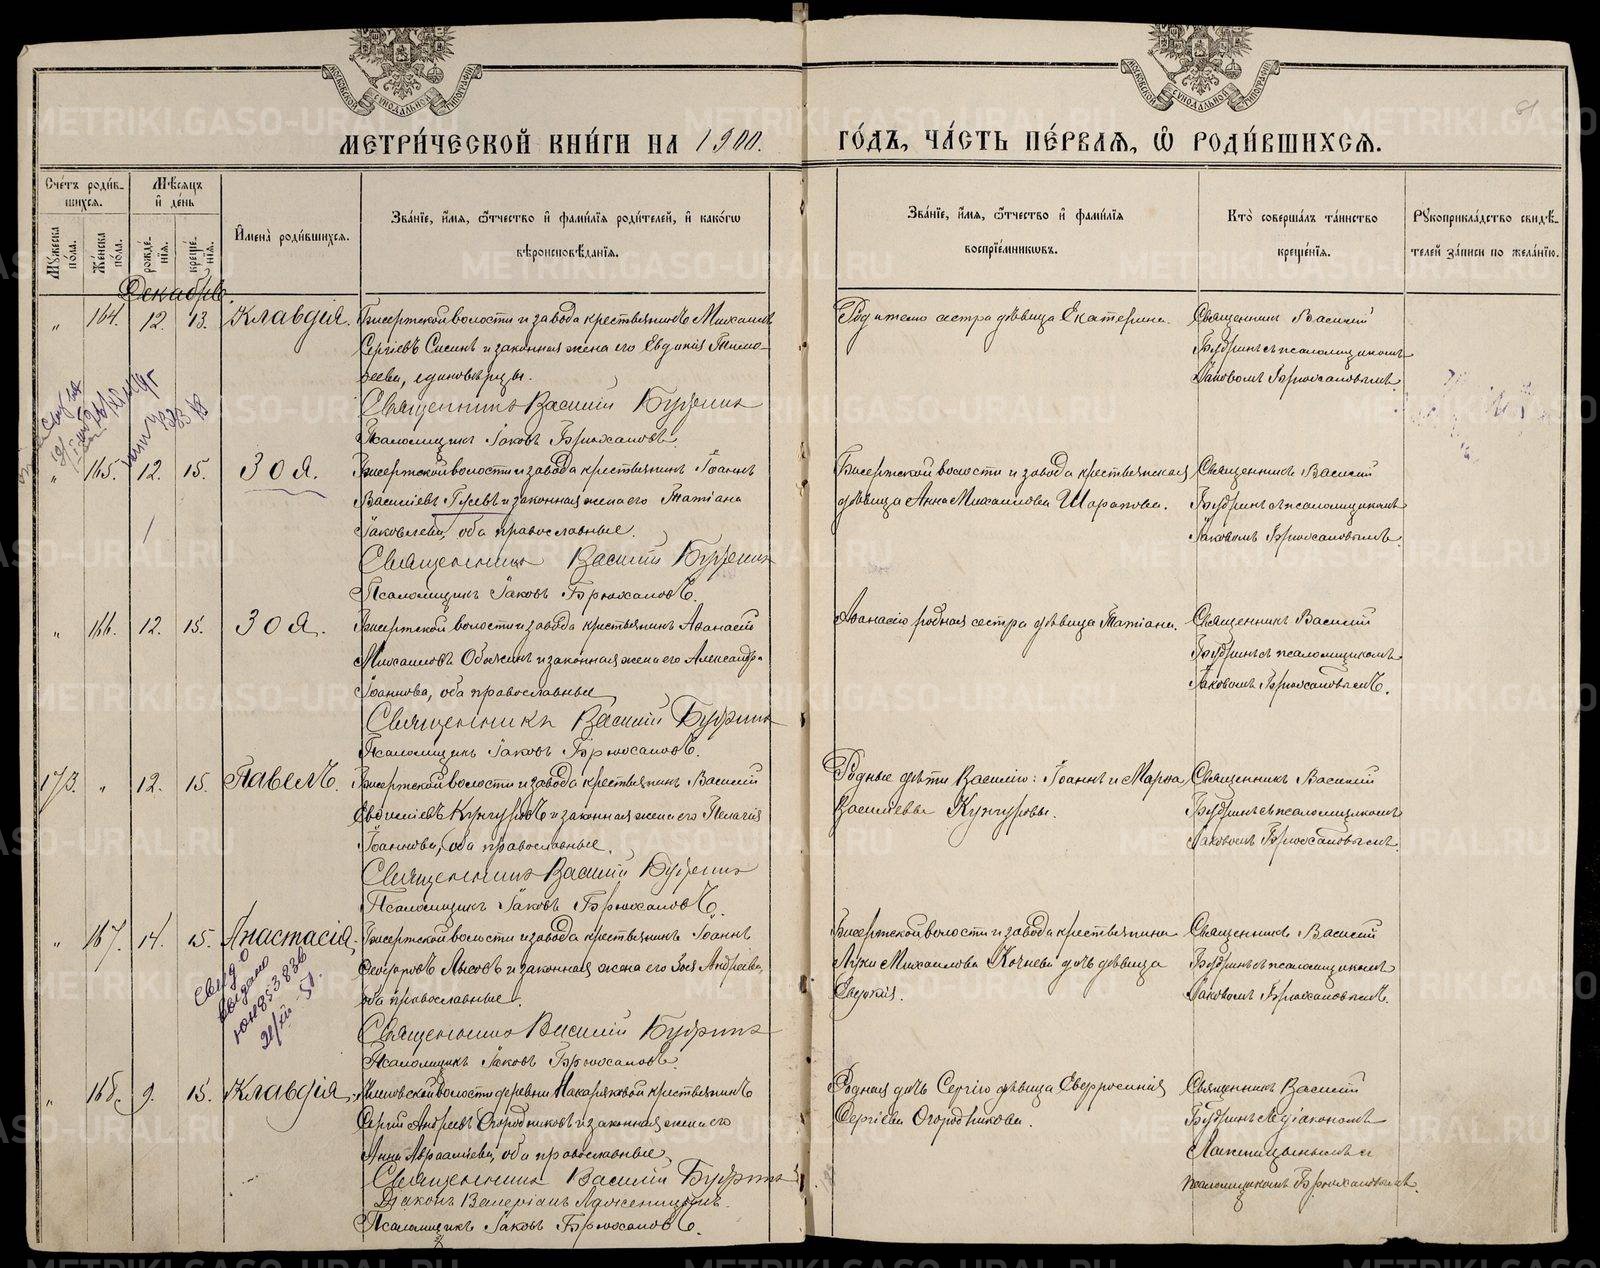 МЕТРИ́ЧЕСКОЙ КНИ́ГИ НА 1900.
ГО́ДЪ, ЧА́СТЬ ПЕ́РВАѦ, Ѽ РОДИ́ВШИХСѦ.
81
Сче́тъ роди́в-
шихсѧ.
Мꙋ́жеска по́ла.
Же́нска по́ла.
Мѣ́сѧцъ и҆ де́нь
рожде́-нїѧ.
креще́-нїѧ.
И҆мена̀ роди́вшихсѧ.
Зва́нїе, и҆́мѧ, ѻ҆́тчество и҆ фами́лїѧ роди́телей, и҆ како́гѡ
вѣроисповѣ́данїѧ.
Зва́нїе, и҆́мѧ, ѻ҆́тчество и҆ фами́лїѧ
воспрїе́мникѡвъ.
Кто̀ соверша́лъ та́инство
креще́нїѧ.
Рꙋкоприкла́дство свидѣ́-
телей за́писи по жела́нїю.
Декабрь.
" 164. 12. 13. Клавдія.
Бисертской волости и завода крестьянинъ Михаилъ
Сергіевъ Сисинъ и законная жена его Евдокія Тимо-
феева, единоверцы.
Священникъ Василій Будринъ
Псаломщикъ Іаковъ Брюхановъ
Родителю сестра дѣвица Екатерина.
Священникъ Василій
Будринъ съ псаломщикомъ
Іаковомъ Брюхановымъ.
" 165. 12. 15. Зоя.
Бисертской волости и завода крестьянинъ Іоаннъ
Василіевъ Гусевъ и законная жена его Татіана
Іаковлева, оба православные.
Священникъ Василій Будринъ
Псаломщикъ Іаковъ Брюхановъ.
Бисертской волости и завода крестьянская
дѣвица Анна Михаилова Шарапова.
Священникъ Василій
Будринъ съ псаломщикомъ
Іаковомъ Брюхановымъ.
" 166. 12. 15. Зоя.
Бисертской волости и завода крестьянинъ Аѳанасій
Михаиловъ Обжинъ и законная жена его Александра
Іоаннова, оба православные
Священникъ Василій Будринъ
Псаломщикъ Іаковъ Брюхановъ.
Аѳанасію родная сестра дѣвица Татіана.
Священникъ Василій
Будринъ съ псаломщикомъ
Іаковомъ Брюхановымъ.
173. " 12. 15. Павелъ.
Бисертской волости и завода крестьянинъ Василій
Евдокимовъ Кунгуровъ и законная жена его Пелагія
Іоаннова, оба православные.
Священникъ Василій Будринъ
Псаломщикъ Іаковъ Брюхановъ.
Родные дѣти Василію: Іоаннъ и Марѳа
Василіевы Кунгуровы.
Священникъ Василій
Будринъ съ псаломщикомъ
Іаковомъ Брюхановымъ.
" 167. 14. 15. Анастасія.
Бисертской волости и завода крестьянинъ Іоаннъ
Ѳеодоровъ Лысовъ и законная жена его Зоя Андреева,
оба православные.
Священникъ Василій Будринъ
Псаломщикъ Іаковъ Брюхановъ.
Бисертской волости и завода крестьянина
Луки Михаилова Кочнева дочь дѣвица
Евдокія.
Священникъ Василій
Будринъ съ псаломщикомъ
Іаковомъ Брюхановымъ.
свид-о
выдано
" 168. 9. 15. Клавдія.
волости деревни крестьянинъ
Сергій Андреевъ Огородниковъ и законная жена его
Анна Авраамиева, оба православные,
Священникъ Василій Будринъ
Діаконъ Валеріанъ
Псаломщикъ Іаковъ Брюхановъ.
Родная дочь Сергію дѣвица Евфросинія
Сергіева Огородникова.
Священникъ Василій
Будринъ съ діакономъ
псаломщикомъ Брюхановымъ.